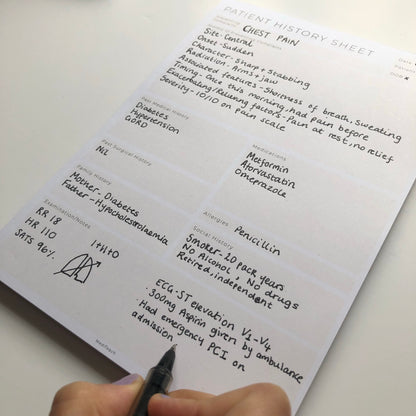 PATIENT HISTORY SHEET
Presenting
CHEST PAIN
Site - Central
Onset - Sudden
Character - Sharp + Stabbing
Radiation - Arms + jaw
Associated features - Shortness of breath, Sweating
Timing - Once this morning, had pain before
Exacerbating/Relieving factors - Pain at rest, no relief
Severity - 10/10 on Pain scale
Past Medical History
Diabetes
Hypertension
GORD
Medications
Metformin
Atorvastatin
Omeprazole
Past Surgical History
Nil
Family History
Mother - Diabetes
Father - Hypocholesterolaemia
Allergies
Penicillin
Social History
Smoker - 20 pack years
No Alcohol, No drugs
Retired, independent
Examination/Notes
RR 18
HR 110
SATS 96%
I + II + 0
ECG - ST elevation V1-V4
· 300mg Aspirin given by ambulance
· Had emergency PCI on
admission